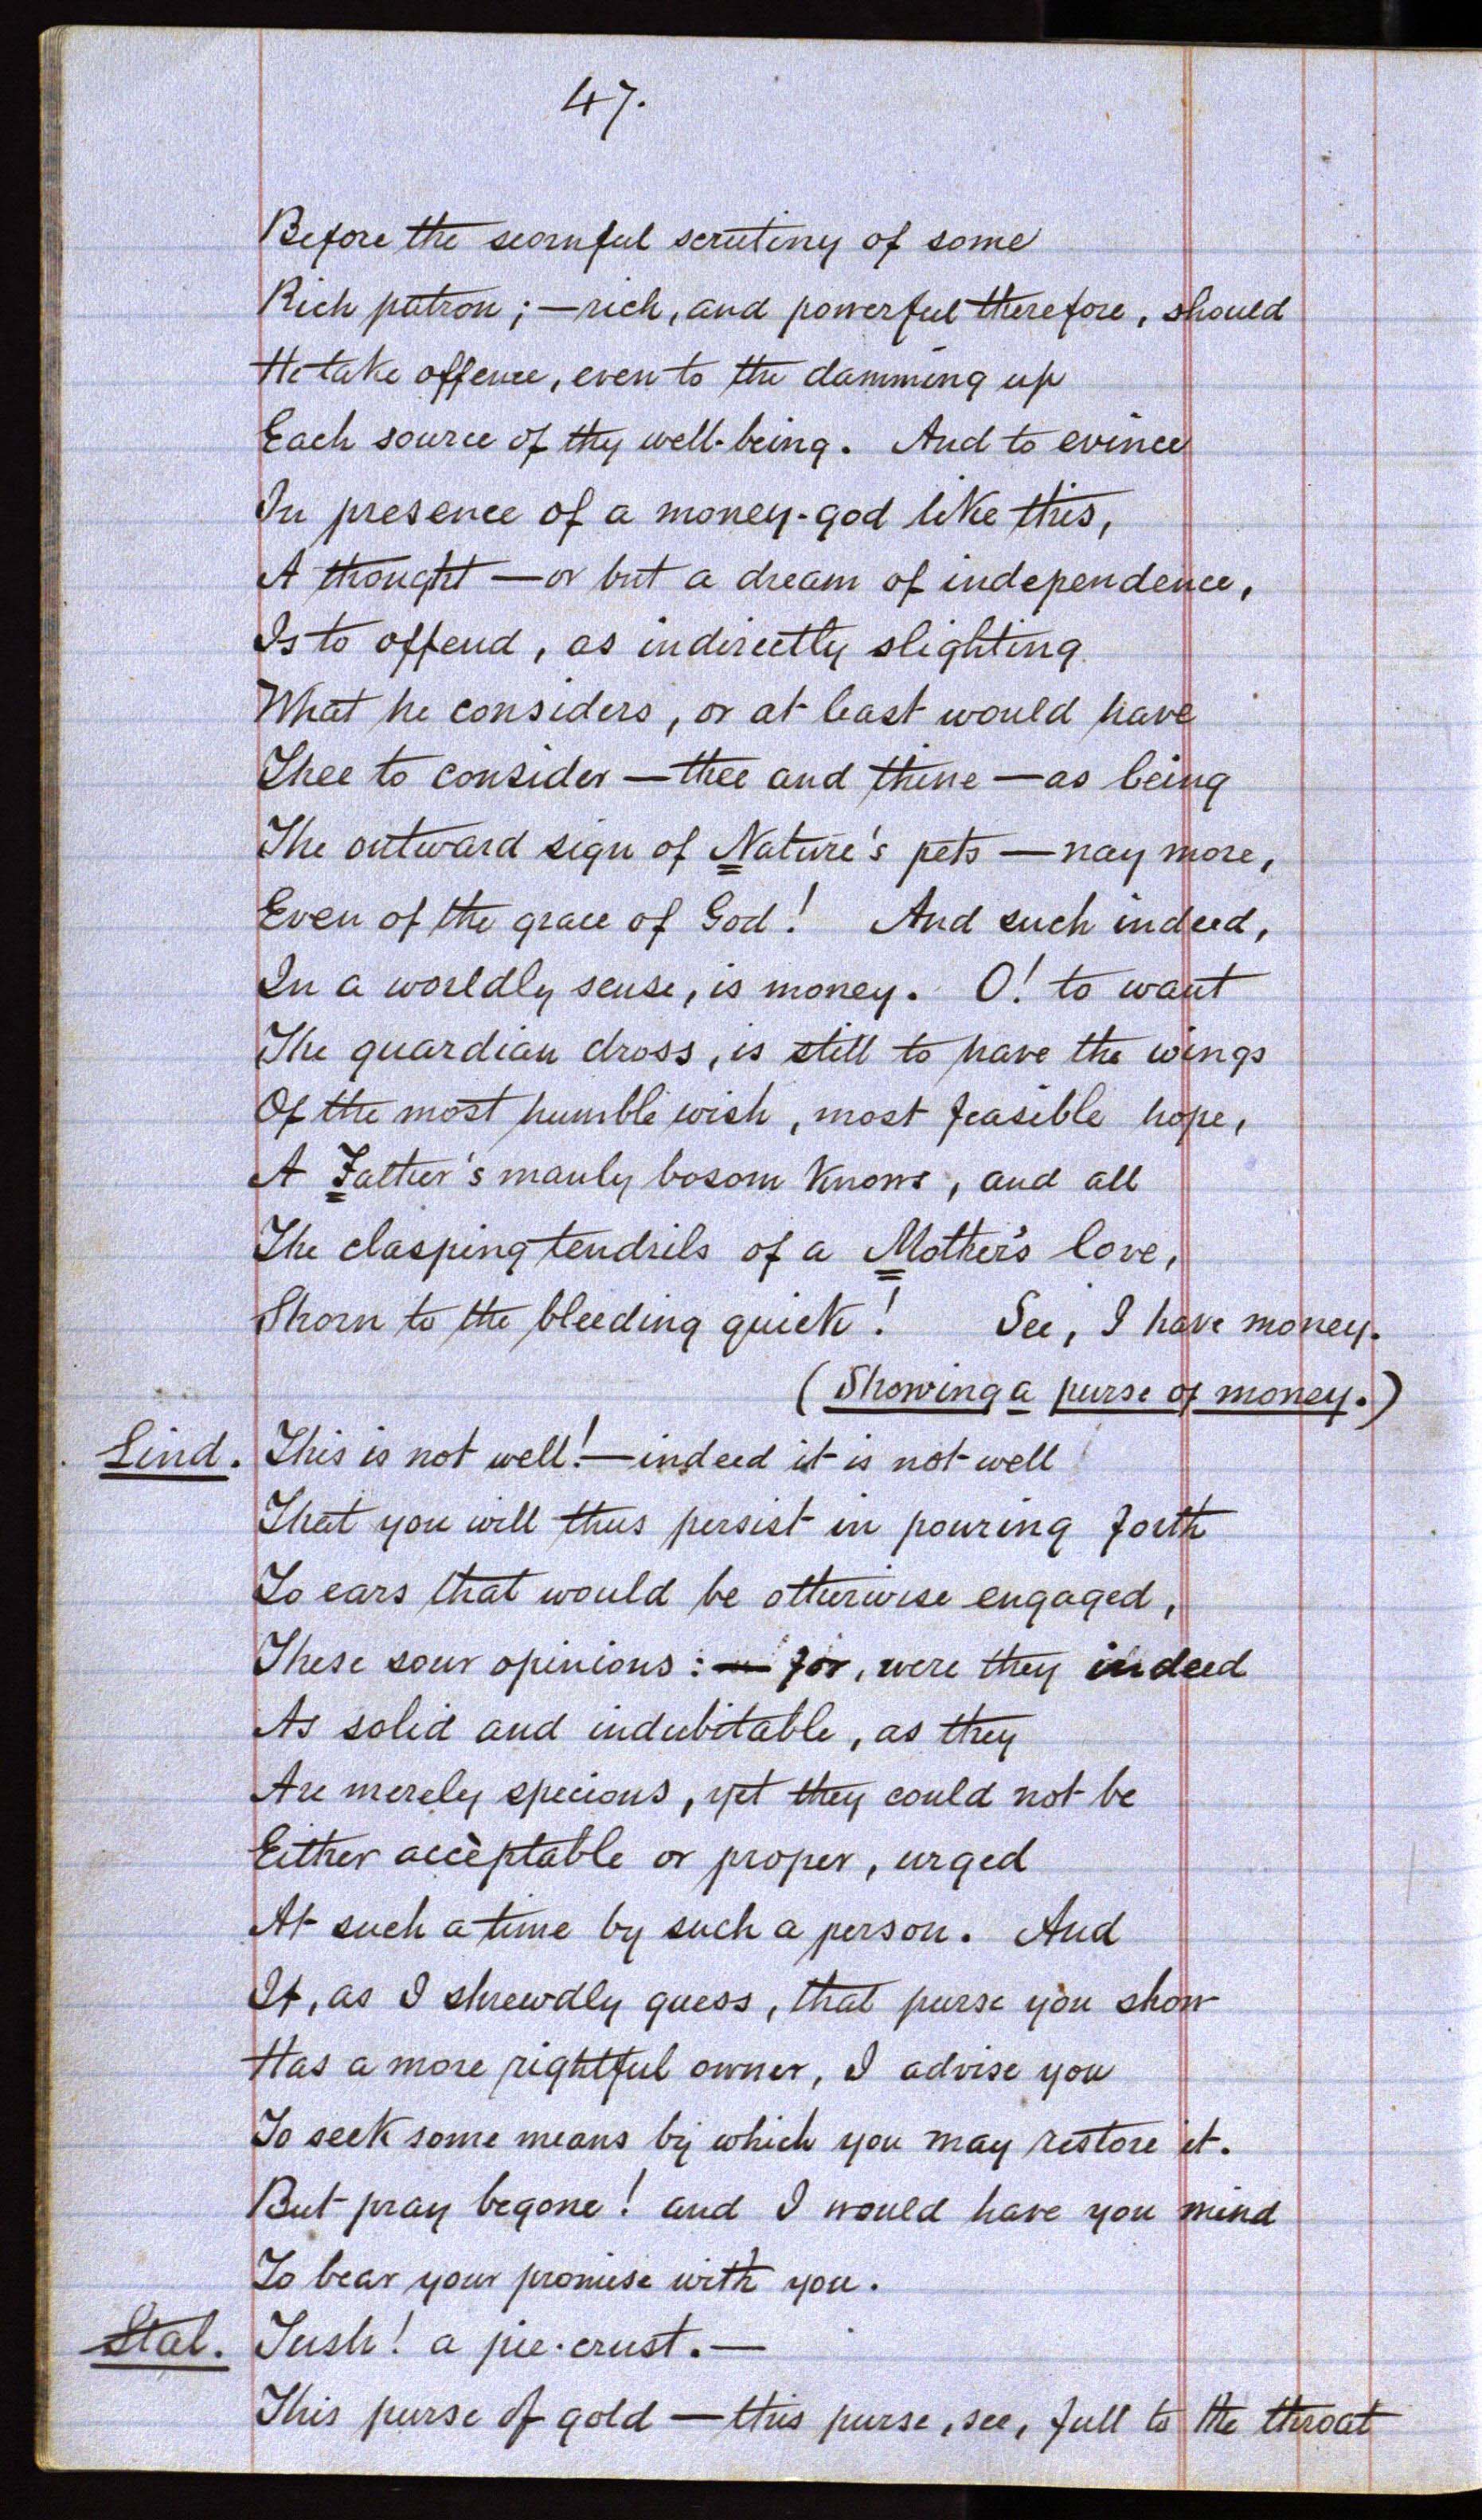 47.
Before the scornful scrutiny of some
Rich patron; — rich, and powerful therefore, should
He take offence, even to the damming up
Each source of thy well-being. And to evince
In presence of a money-god like this,
A thought — or but a dream of independence,
Is to offend, as indirectly slighting
What he considers, or at least would have
Thee to consider — thee and thine — as being
The outward sign of Nature's pets — nay more,
Even of the grace of God! And such indeed,
In a worldly sense, is money. O! to want
The guardian dross, is still to have the wings
Of the most humble wish, most feasible hope,
A Father's manly bosom knows, and all
The clasping tendrils of a Mother's love,
Shorn to the bleeding quick! See, I have money.
(Showing a purse of money.)
Lind. This is not well! — indeed it is not well
That you will thus persist in pouring forth
To ears that would be otherwise engaged,
These sour opinions: — for, were they indeed
As solid and indubitable, as they
Are merely specious, yet they could not be
Either accèptable or proper, urged
At such a time by such a person. And
If, as I shrewdly guess, that purse you show
Has a more rightful owner, I advise you
To seek some means by which you may restore it.
But pray begone! and I would have you mind
To bear your promise with you.
Stal. Tush! a pie-crust. —
This purse of gold — this purse, see, full to the throat